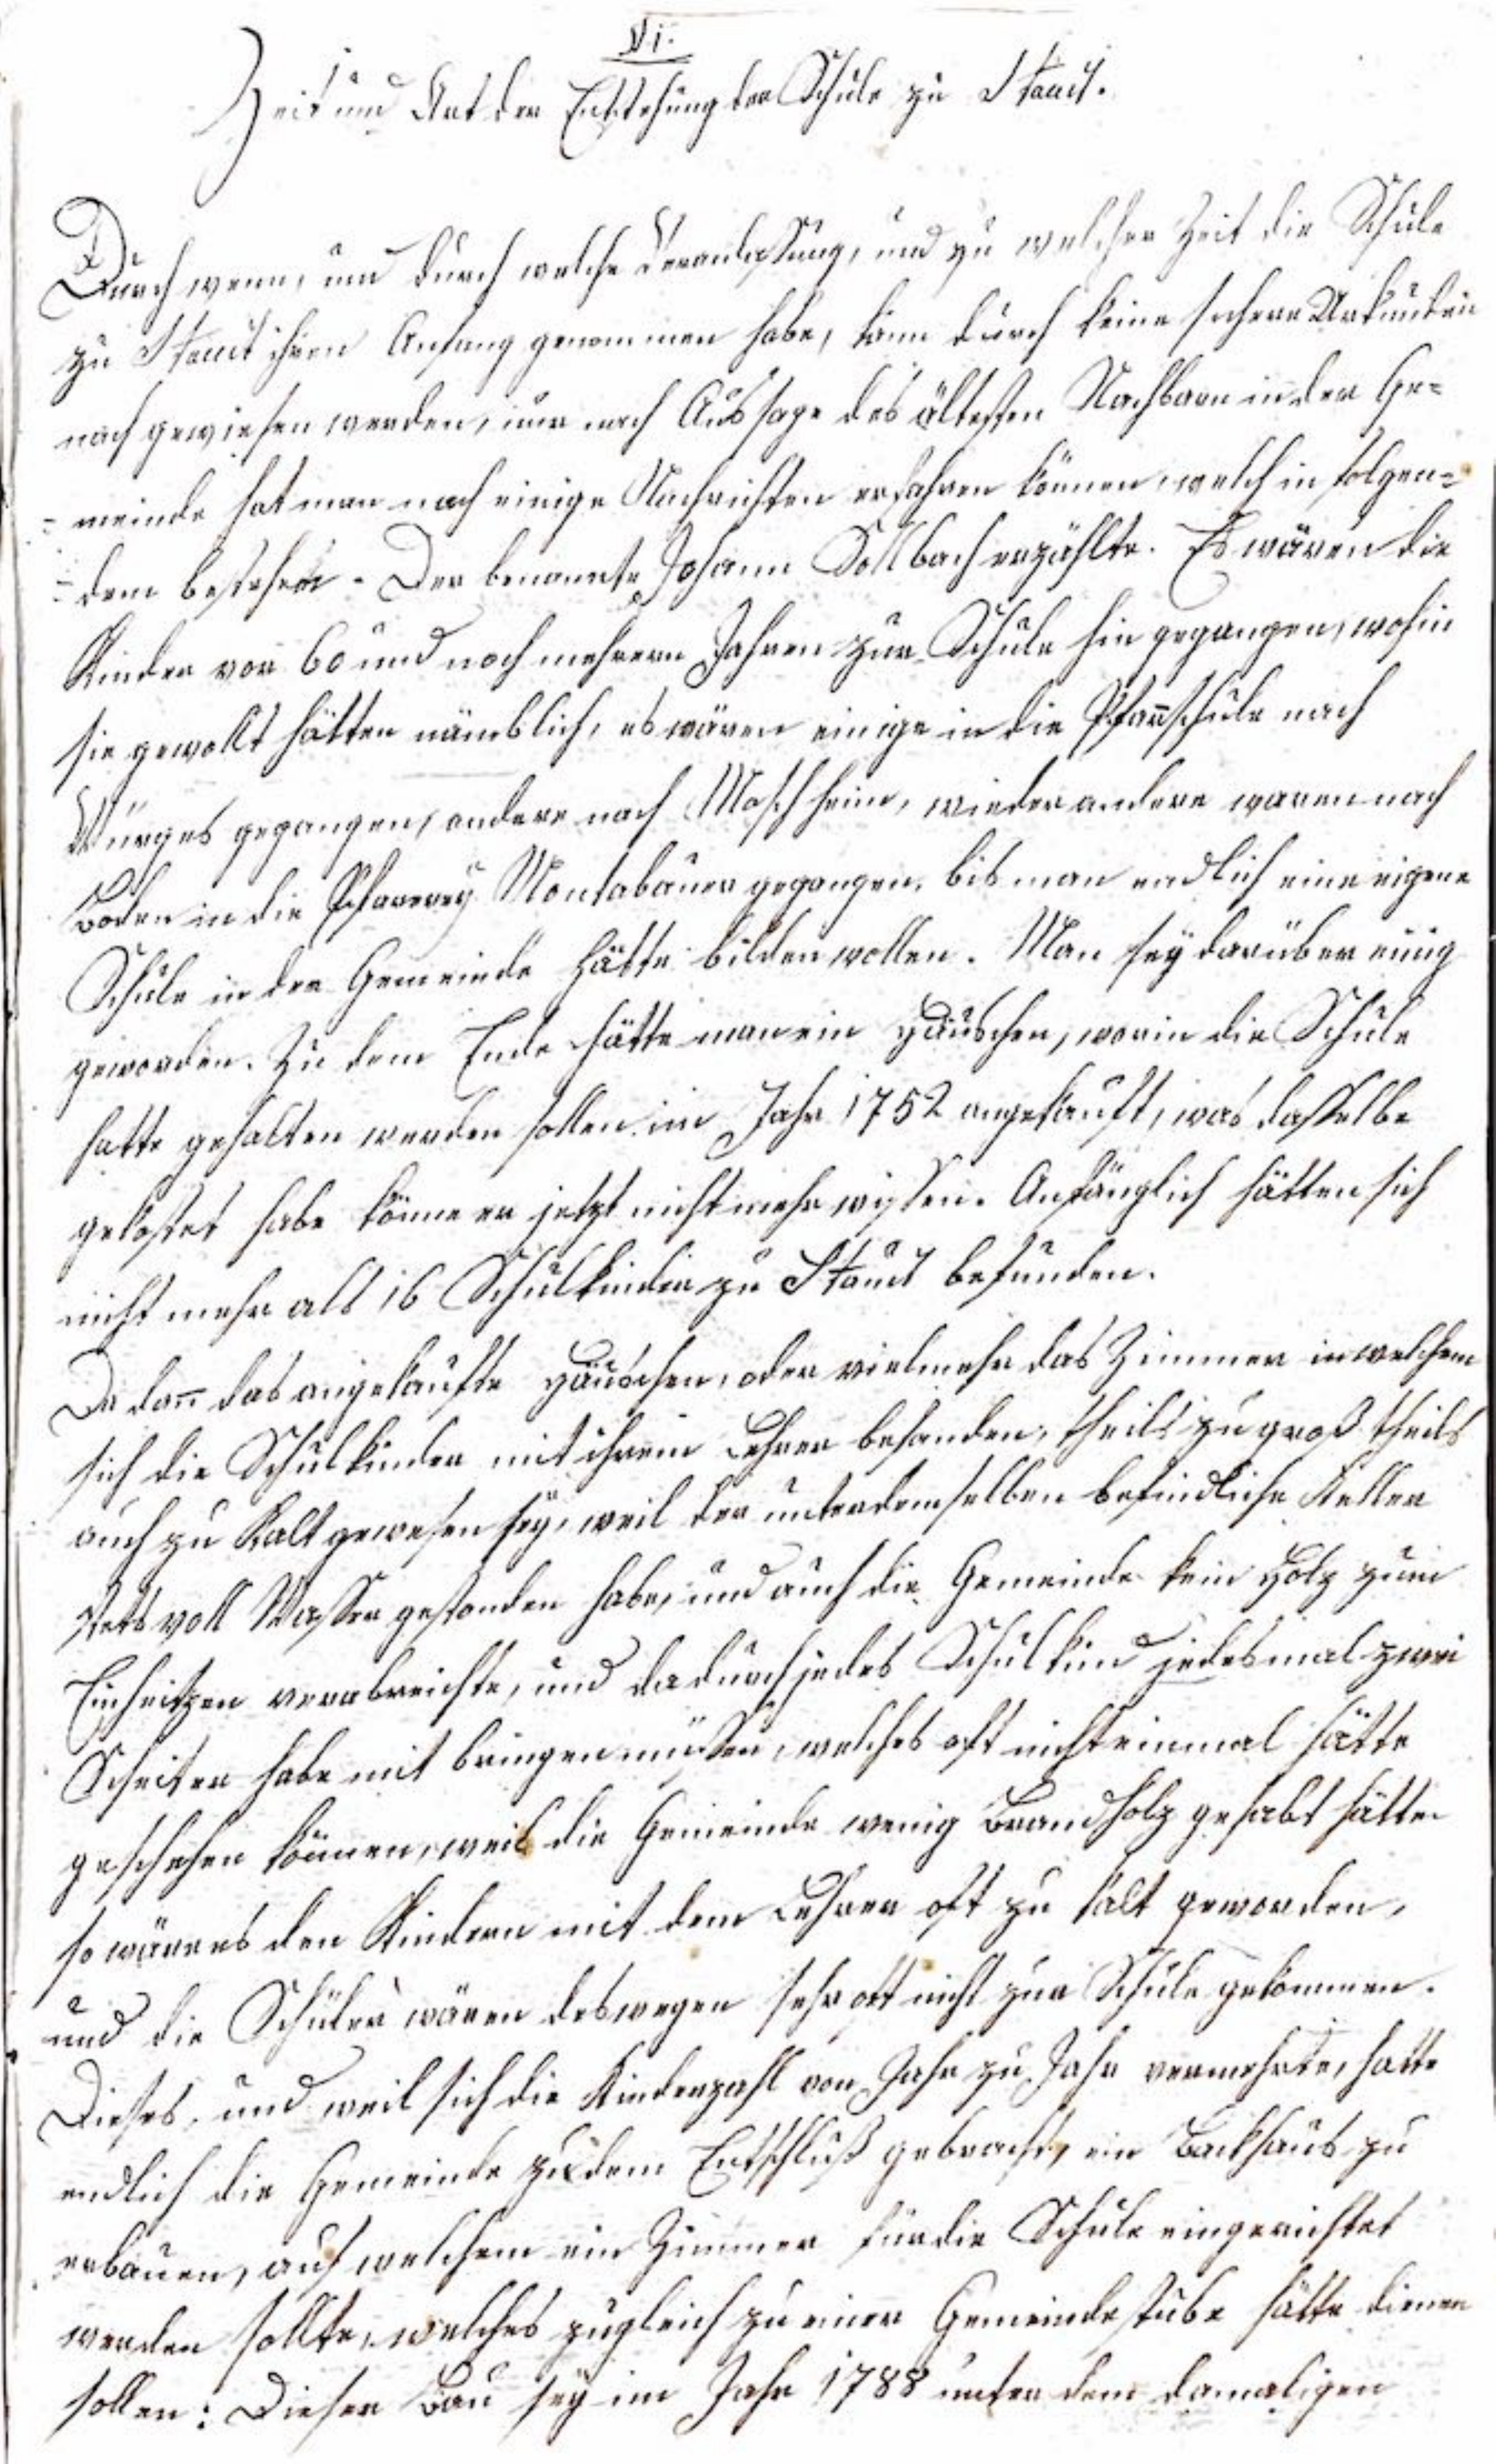 VI.
Zeit und Art der Entstehung der Schule zu Staudt.
Durch wenn, und durch welche Veranlaßung, und zu welcher Zeit die Schule
zu Staudt ihren Anfang genommen habe, kann durch keine sichere Urkunden
nach gewiesen werden, nur nach Aussage des ältesten Nachbarn in der Ge=
=meinde hat man noch einige Nachrichten erfahren können, welch in folgen=
=dem bestehen. Der benannte Johann Sollbach erzählte. Es wären die
Kinder vor 60 und noch mehrern Jahren zur Schule hin gegangen, wohin
sie gewollt hätten nämblich, es wären einige in die Pfarrschule nach
Würges gegangen, andere nach Moschheim, wieder andere waren nach
Boden in die Pfarrey Montabauer gegangen, bis man endlich eine eigene
Schule in der Gemeinde hätte bilden wollen. Man sey darüber einig
geworden. Zu dem Ende hätte man ein Häuschen, worin die Schule
hatte gehalten werden sollen im Jahr 1752 angekauft, was dasselbe
gekostet habe könne er jetzt nicht mehr wissen. Anfänglich hätten sich
nicht mehr als 16 Schulkinder zu Staudt befunden.
Da dan̄ das angekaufte Häuschen, oder vielmehr das Zimmer in welchem
sich die Schulkinder mit ihrem Lehrer befanden, theils zu groß theils
auch zu Kalt gewesen sey, weil der unter demselben befindliche Keller
stets voll Wasser gestanden habe, und auch die Gemeinde kein Holz zum
Einheitzen verabreichte, und dadurch jedes Schulkind jedesmal zwei
Scheiter habe mit bringen müßen, welches oft nicht einmal hätte
geschehen können, weil die Gemeinde wenig Brandholz gehabt hätte
so wäre es den Kindern mit dem Lehrer oft zu kalt geworden,
und die Schüler wären deswegen sehr oft nicht zur Schule gekommen.
Dieses, und weil sich die Kinderzahl von Jahr zu Jahr vermehrte, hatte
endlich die Gemeinde zu dem Entschluß gebracht, ein Backhaus zu
erbauen, auf welchem ein Zimmer für die Schule eingerichtet
werden sollte, welches zugleich zu einer Gemeindestube hätte dienen
sollen: Dieser Bau sey im Jahr 1788 unter dem damaligen